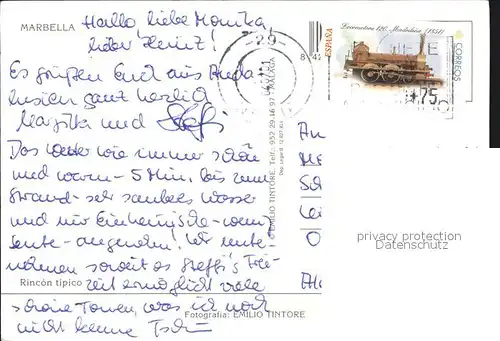 MARBELLA
Hallo, liebe Monika,
lieber Heinz!
Es grüßen Euch aus Anda
lusien ganz herzlich
Margitta und Steffi
Das Wetter wie immer schön
und warm - 5 Min. bis zum
Strand - sehr sauberes Wasser
und nur Einheimische - wenig
Leute - angenehm! Wir unter-
nehmen soweit es Steffi's Frei-
zeit ermöglicht viele
schöne Touren, was ich noch
nicht kenne Tschü
Rincón típico
Fotografía: EMILIO TINTORE
EMILIO TINTORE. Telf.: 952 29 46 97 - MALAGA
29
ESPAÑA
Locomotora 126. Madrileña (1851)
CORREOS
+75
privacy protection
Datenschutz